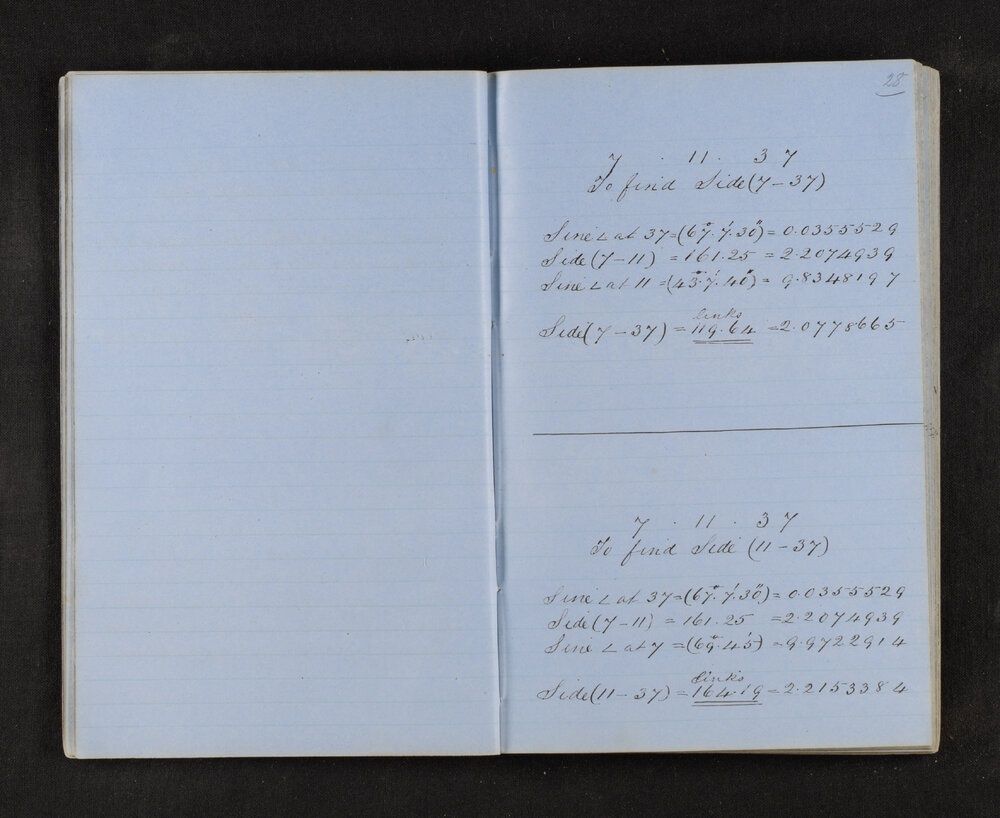 28
7 . 11 . 37
To find Side (7 – 37)
Sine ∠ at 37 = (67°.7'.30") = 0.0355529
Side (7 – 11) = 161.25 = 2.2074939
Sine ∠ at 11 = (43°.7'.40") = 9.8348197
links
Side (7 – 37) = 119.64 = 2.0778665
7 . 11 . 37
To find Side (11 – 37)
Sine ∠ at 37 = (67°.7'.30") = 0.0355529
Side (7 – 11) = 161.25 = 2.2074939
Sine ∠ at 7 = (69°.45') = 9.9722914
links
Side (11 – 37) = 164.19 = 2.2153384